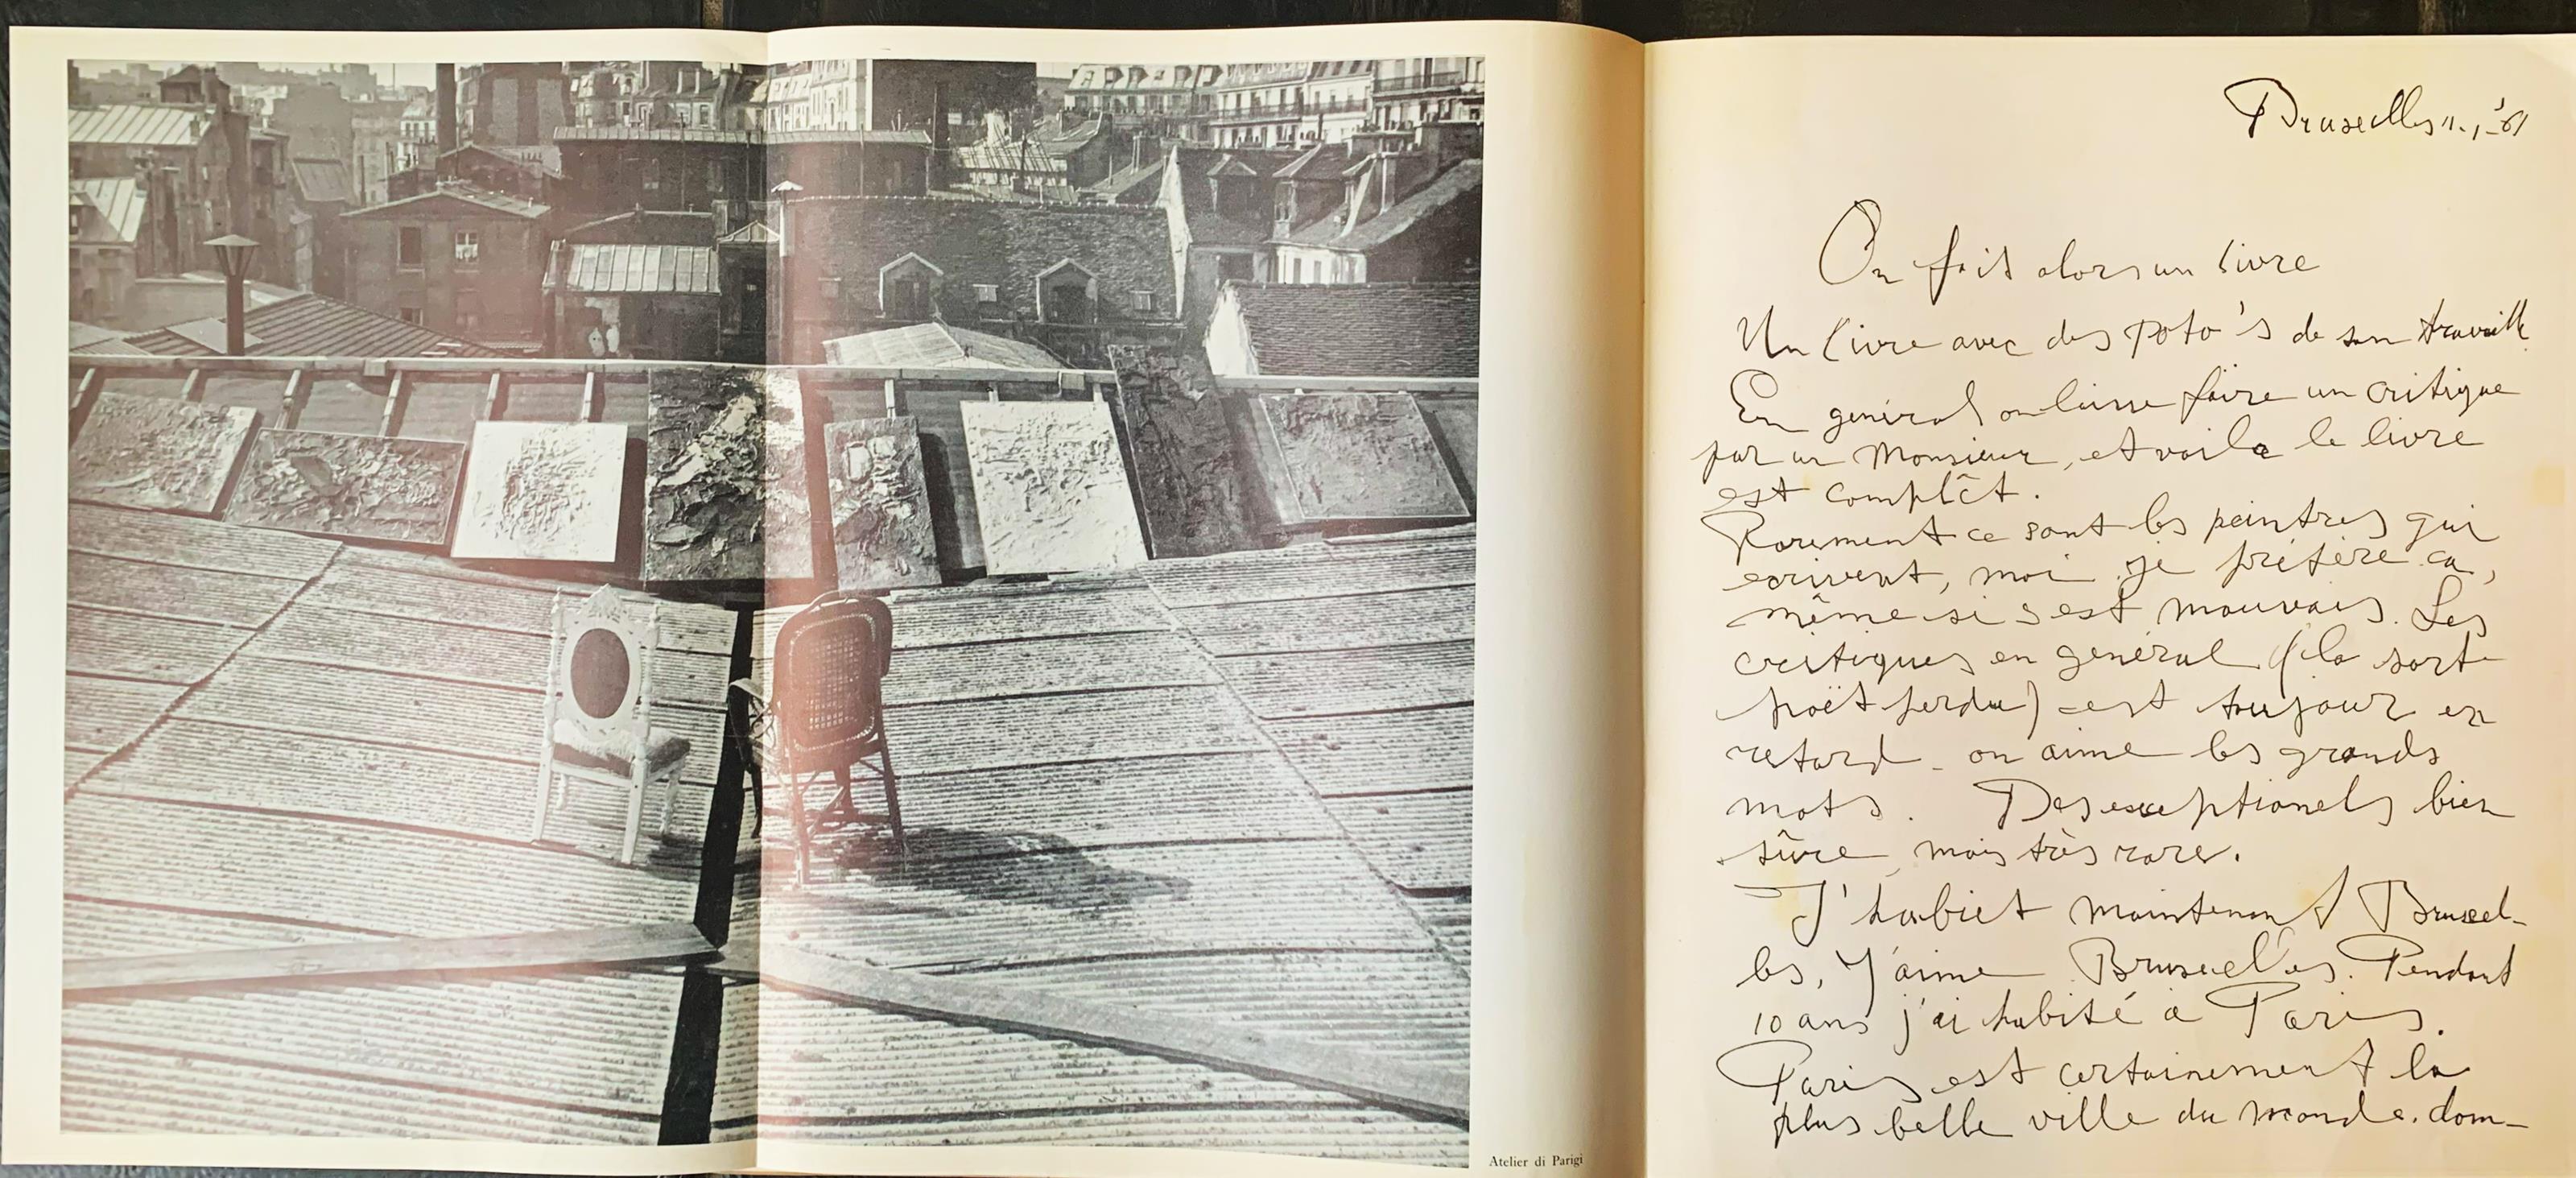 Atelier di Parigi
Bruxelles 11-1-'61
On fait alors un livre
Un livre avec des poto's de son travaill
En genéral on laisse faire un critique
par un Monsieur, et voila le livre
est complêt.
Rarement ce sont les peintres qui
ecrivent, moi je préfère ca,
même si s est mauvais. Les
critiques en genéral (la sort
poët perdu) est toujour en
retard - on aime les grands
mots. Des exceptionels bien
sûre, mais très rare.
J'habiet maintenant Bruxel-
les, J'aime Bruxelles. Pendant
10 ans j'ai habité a Paris.
Paris est certainement la
plus belle ville du monde. dom-